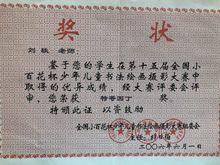 奖状
刘颖 老师：
鉴于您的学生在第十五届全国小
百花杯少年儿童书法绘画摄影大赛中
取得的优异成绩，经大赛评委会评
审，您荣获 特等园丁 奖
特颁此证 以资鼓励
全国小百花杯少年儿童书法绘画摄影大赛组委会
二〇〇六年六月一日